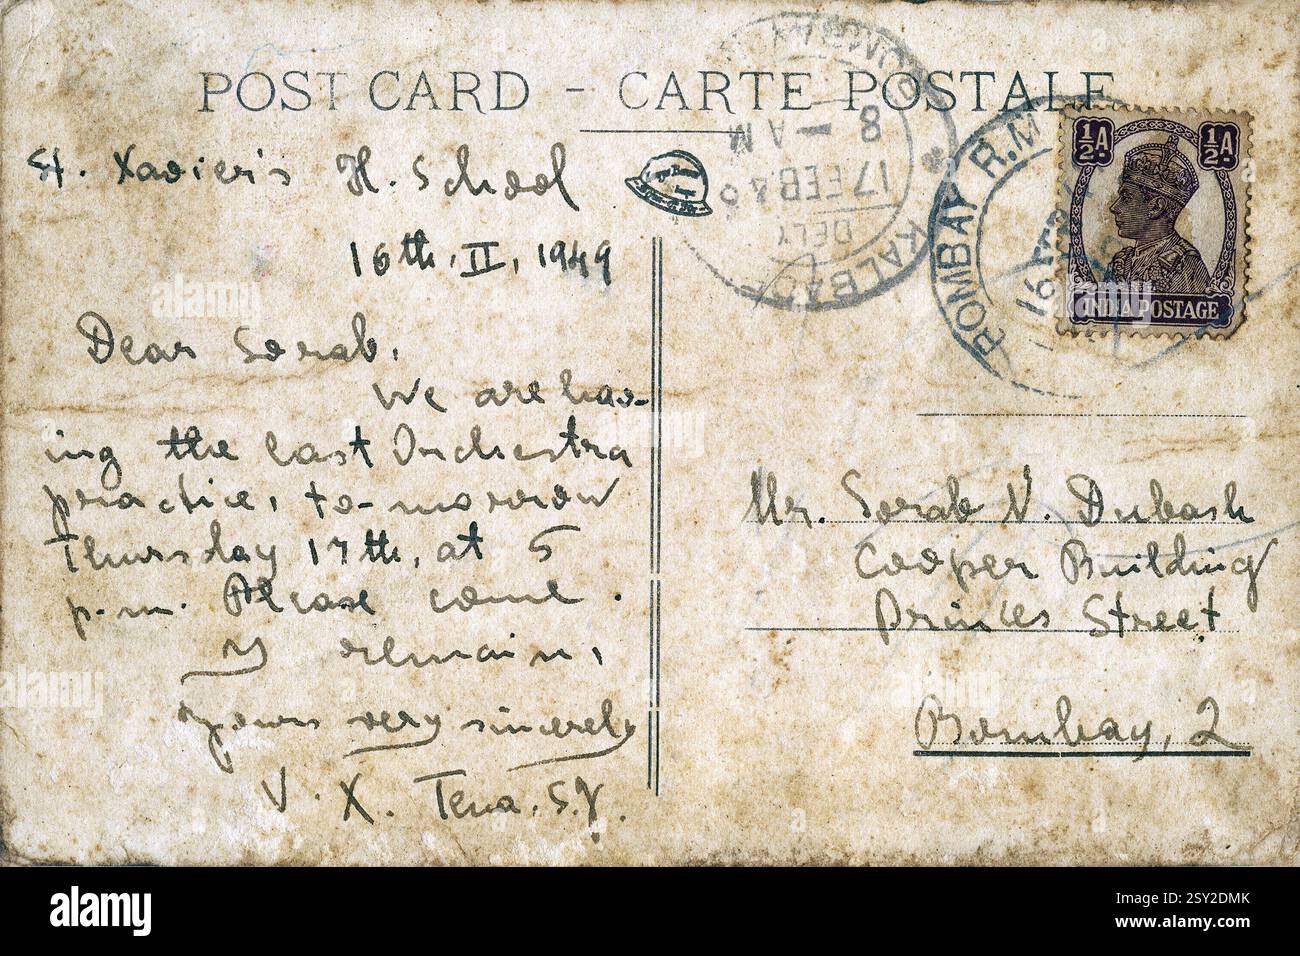 POST CARD - CARTE POSTALE
St. Xavier's H. School
16th, II, 1949
Dear Sorab,
We are hav-
ing the last Orchestra
practice, to-morrow
Thursday 17th, at 5
p.m. Please come.
I remain,
yours very sincerely
V. X. Tena, S.J.
KALBADE
DELY
17 FEB 46
8 - AM
BOMBAY R.M
16
½A
½A
INDIA POSTAGE
Mr. Sorab N. Dubash
Cooper Building
Princes Street
Bombay, 2
alamy
alamy
Image ID: 2S Y2DMK
www.alamy.com